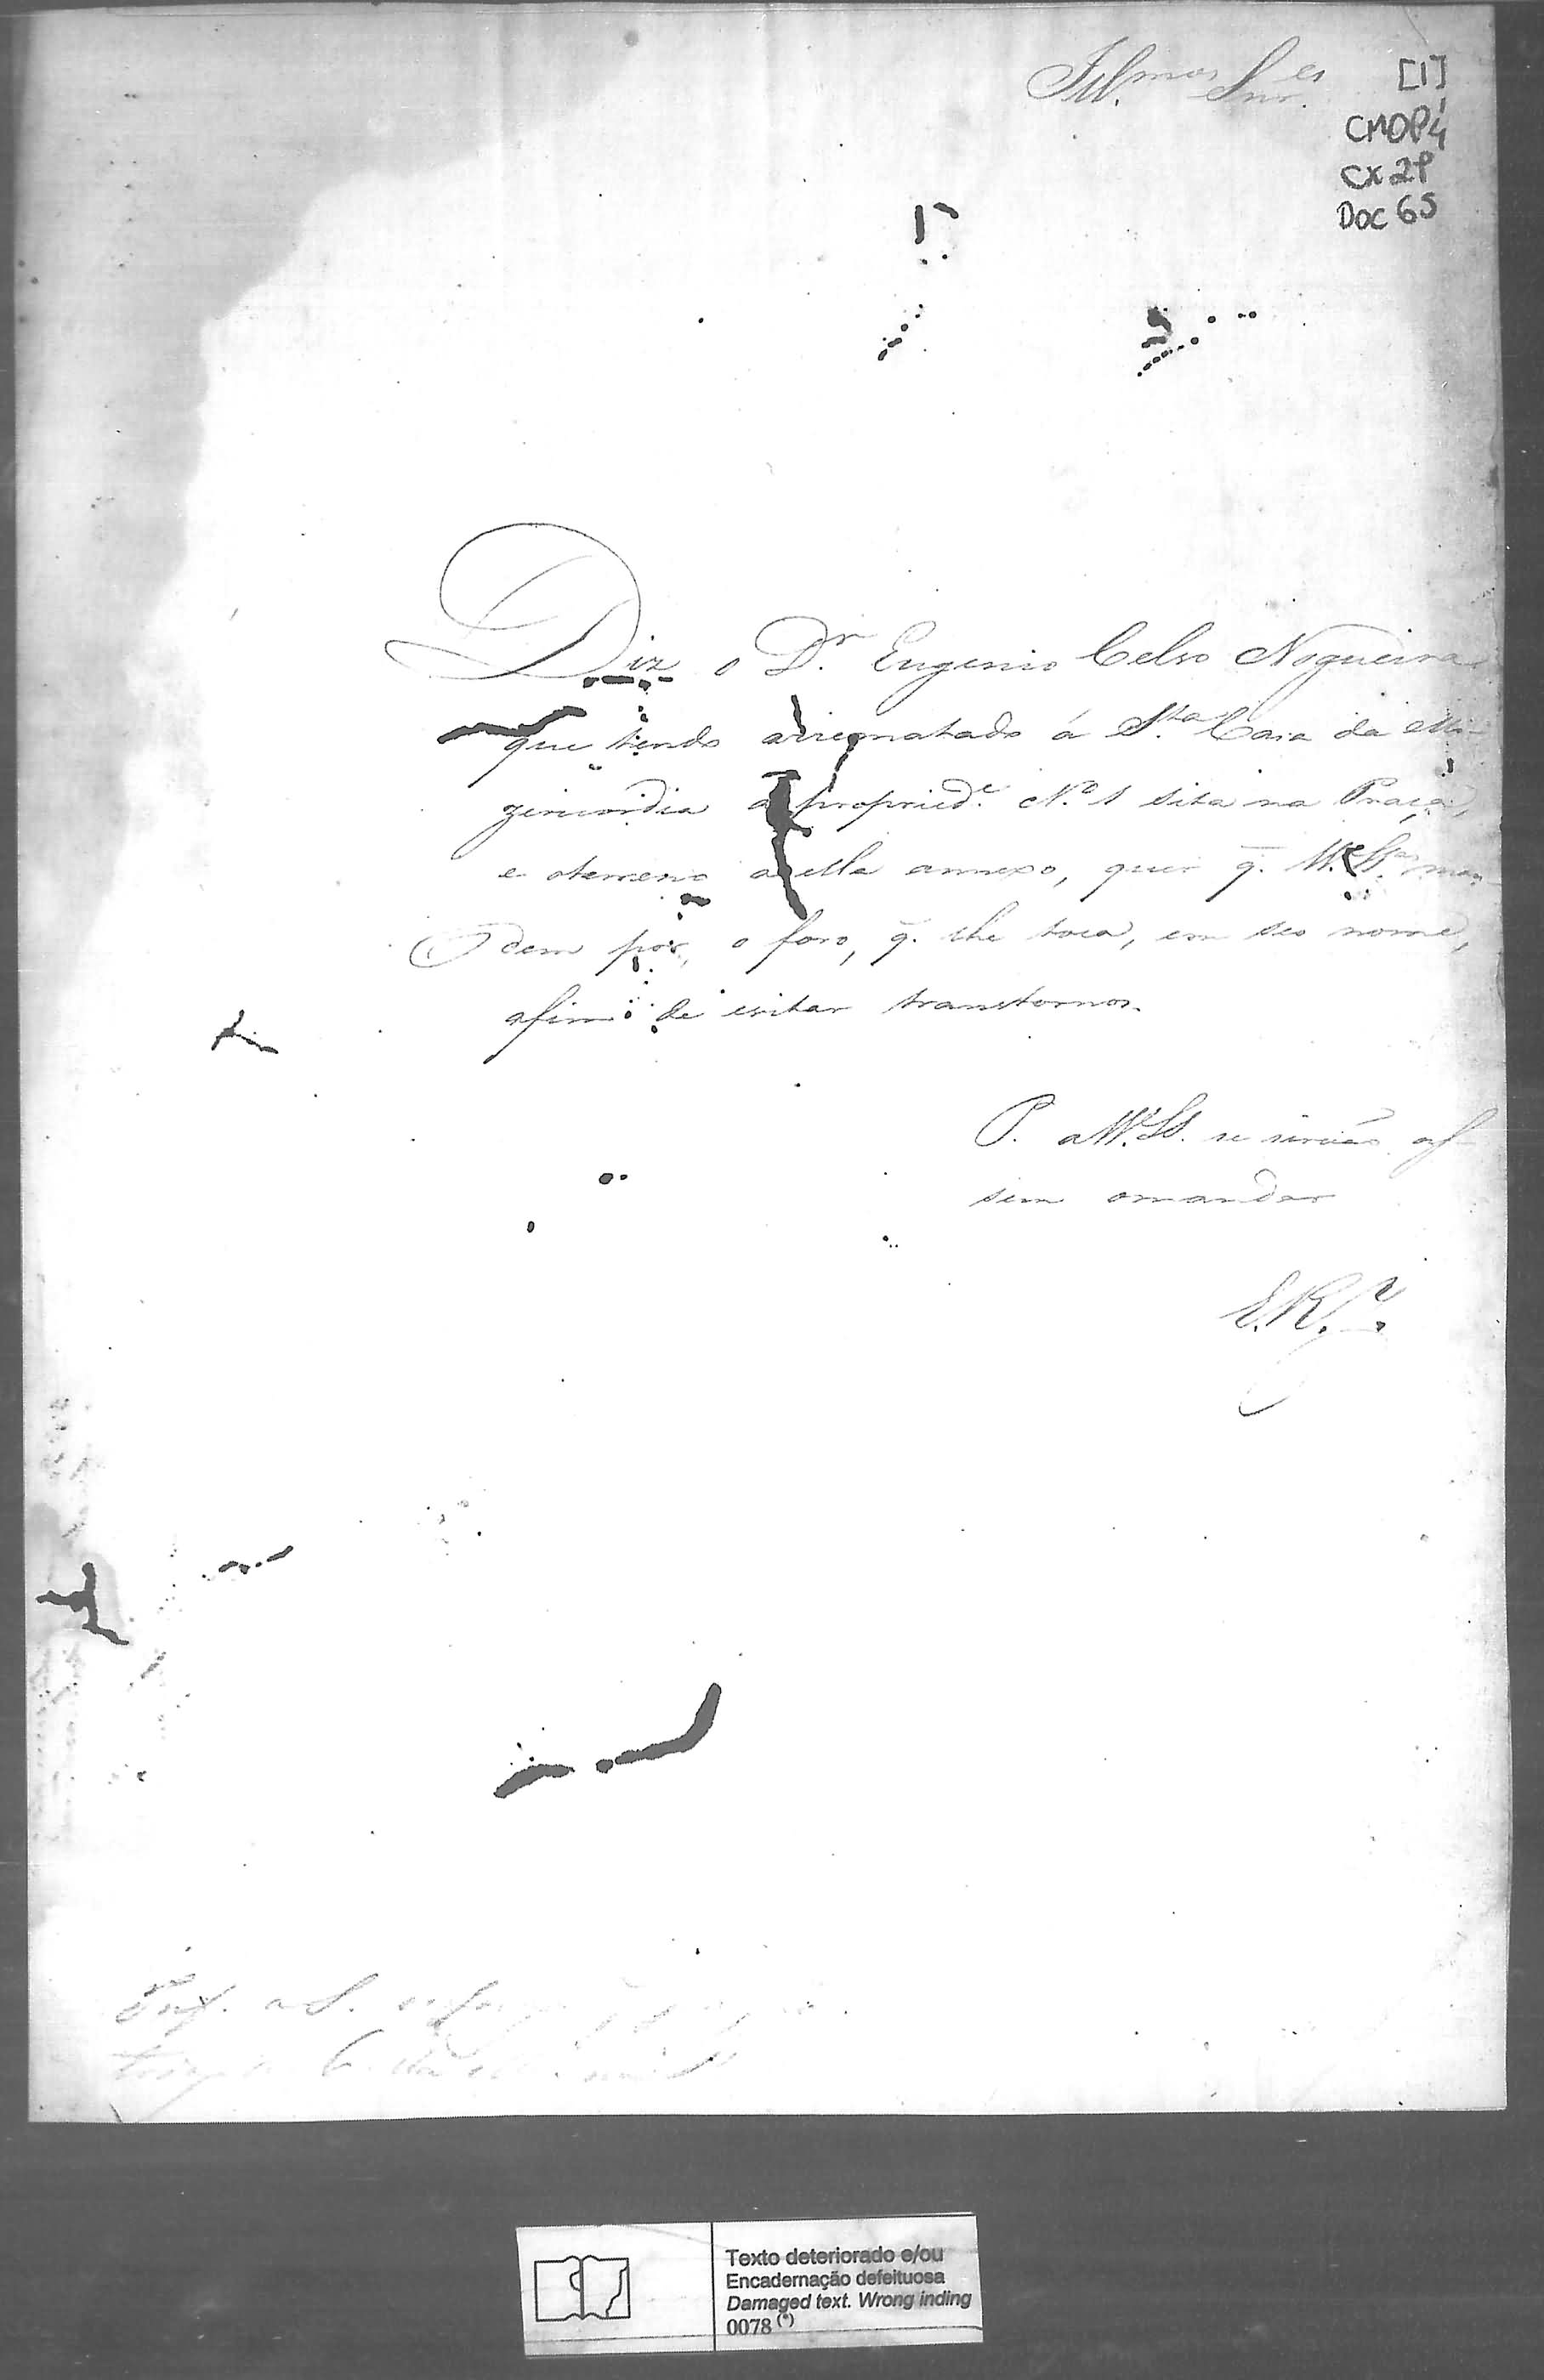 Ill.mos Snr.es
[1]
CMOP4
CX 29
Doc 65
Diz o D.r Eugenio Celso Nogueira
que tendo arrematado á S.ta Casa da Mi-
zericordia a propried.e N.o 1 sita na Praça,
e oterreno a ella annexo, quer q. V.V.S.S. man
dem pôr, o foro, q. lhe toca, em seo nome,
afim de evitar transtornos.
P. a V.V.S.S. se sirvão as-
sim omandar
E.R.M.ce
Inf. o S.
Texto deteriorado e/ou
Encadernação defeituosa
Damaged text. Wrong inding
0078 (*)